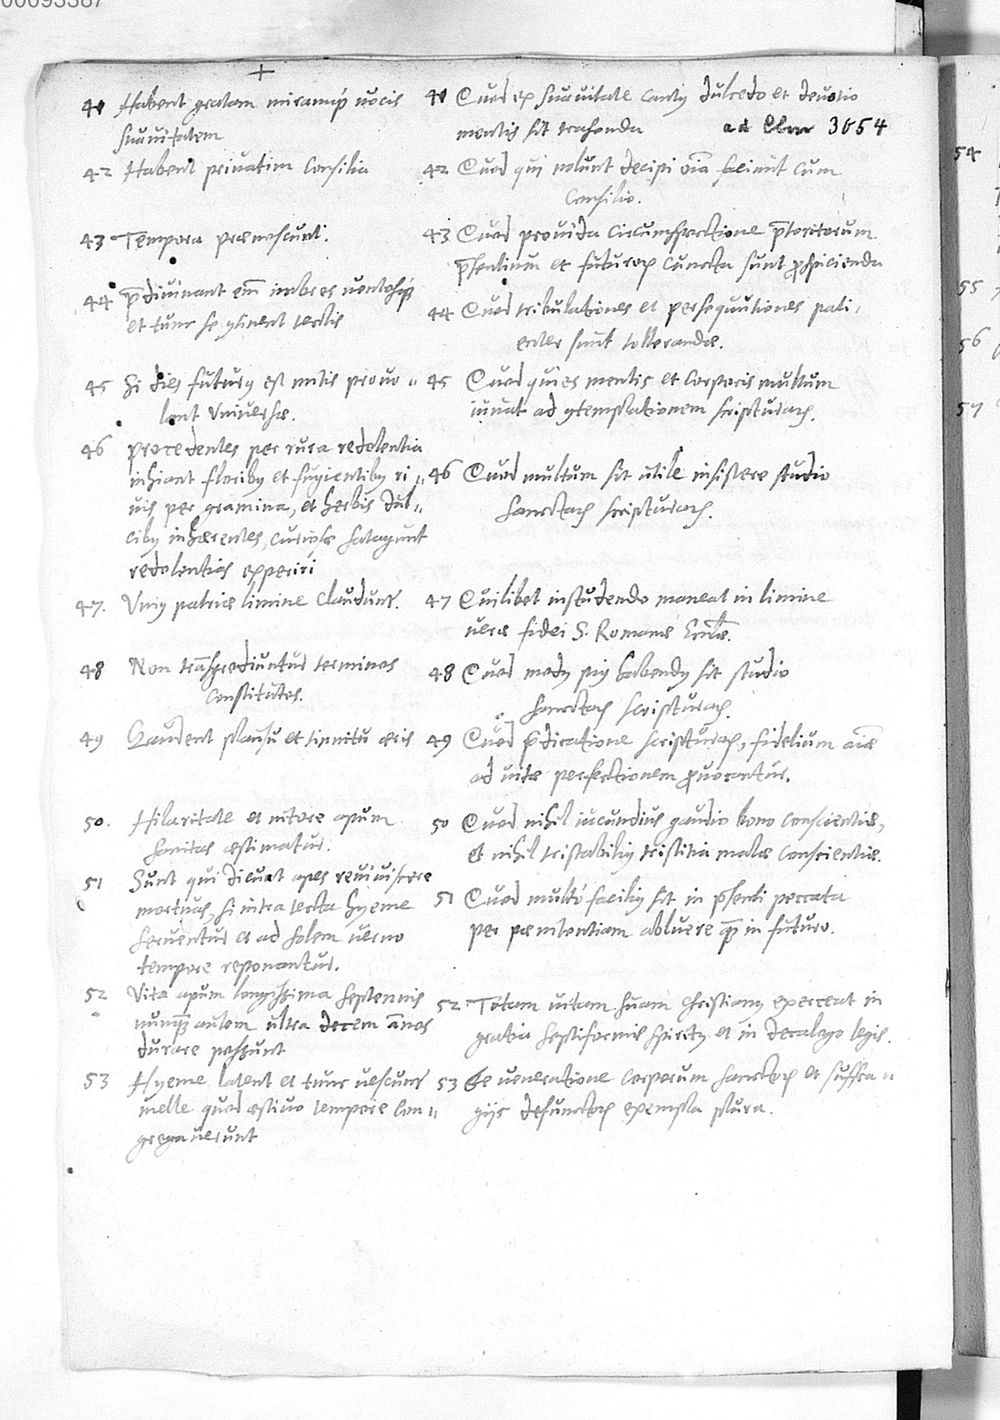 00093387
+
41 Habent gratam miramq́ uocis
suauitatem
42 Habent priuatim Consilia
43 Tempora praenoscunt.
44 p̄diuinant em̄ imbres uentosq́;
et tunc se 9tinent tectis
45 Si dies futurq est mitis prouo„
lant Vniuersae.
46 procedentes per rura redolentia
inhiant floribq et fugientibq ri„
uis per gramina, et herbis dul„
cibq inhaerentes, curiosae satagunt
redolentias experiri
47. Vniq patriae limine Claudunt.
48 Non transgrediuntur terminos
Constitutos.
49 Gaudent plausu et tinnitu aeris
50. Hilaritate et nitore apum
sanitas aestimatur.
51 Sunt qui dicunt apes reuiuiscere
mortuas, si intra tecta hyeme
seruentur et ad solem uerno
tempore reponantur.
52 Vita apum longissima septennis
nunq̄ autem ultra decem annos
durare possunt
53 Hyeme latent et tunc uescunt
melle quod aestiuo tempore Con„
gregauerunt
41 Quod ex suauitate Cantq dulcedo et deuotio
mentis sit trahenda
ad Cbm 3654
42 Quod qui nolunt decipi oīa faciunt Cum
Consilio.
43 Quod prouida circumspectione p̄teritorum
p̄sentium et futurorꝫ Cuncta sunt ꝓspicienda
44 Quod tribulationes et persequutiones pati„
enter sunt tollerandae.
45 Quod quies mentis et Corporis multum
iuuat ad 9templationem scripturarꝫ.
46 Quod multum sit utile insistere studio
sanctarꝫ scripturarꝫ.
47 Quilibet in studendo maneat in limine
uerae fidei S. Romanae Eccl̄ae.
48 Quod modq piq habendq sit studio
sanctarꝫ scripturarꝫ.
49 Quod p̄dicatione scripturarꝫ, fidelium aīae
ad uitae perfectionem ꝓuocantur.
50 Quod nihil iucundius gaudio bonae Conscientiae,
et nihil tristabiliq tristitia malae Conscientiae.
51 Quod multó faciliq sit in p̄senti peccata
per paenitentiam abluere quā in futuro.
52 Totam uitam suam Christianq exerceat in
gratia septiformis spiritq et in decalogo legis.
53 De ueneratione Corporum sanctorꝫ et suffra„
gijs defunctorꝫ exempla plura.
54
55
56
57